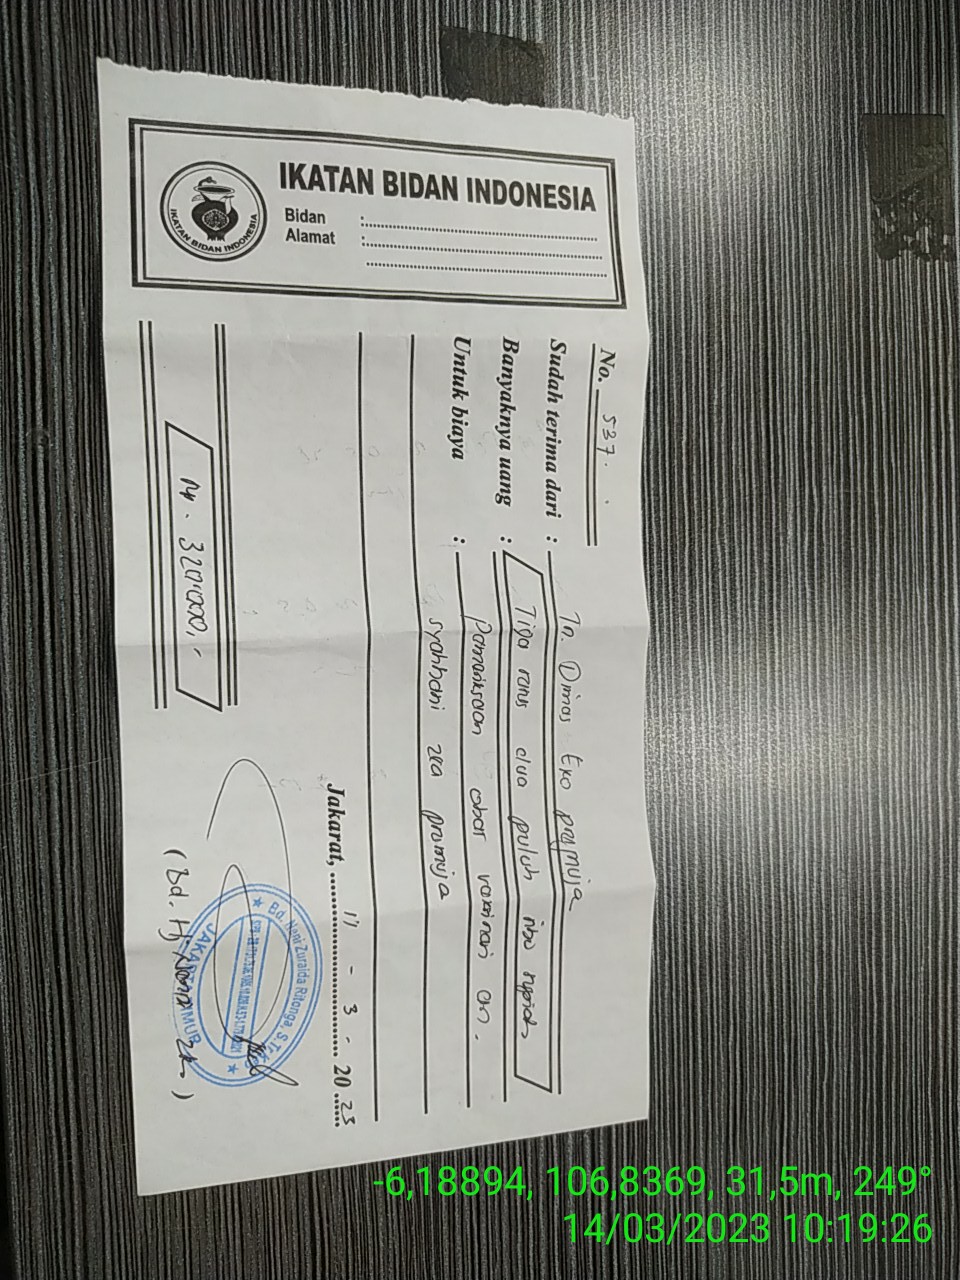 IKATAN BIDAN INDONESIA
Bidan :
Alamat :
IKATAN BIDAN INDONESIA
No. 537.
Sudah terima dari : Tn. Dimas Eko pramuja
Banyaknya uang : Tiga ratus dua puluh ribu rupiah
Untuk biaya : Pemeriksaan obat vaksinasi an.
syahbani zea pramuja
Jakarat, 11 - 3 - 20 23
320.000,-
Bd. Neni Zuraida Ritonga, S.Tr.Keb
JAKARTA TIMUR
(Bd. Hj
-6,18894, 106,8369, 31,5m, 249°
14/03/2023 10:19:26